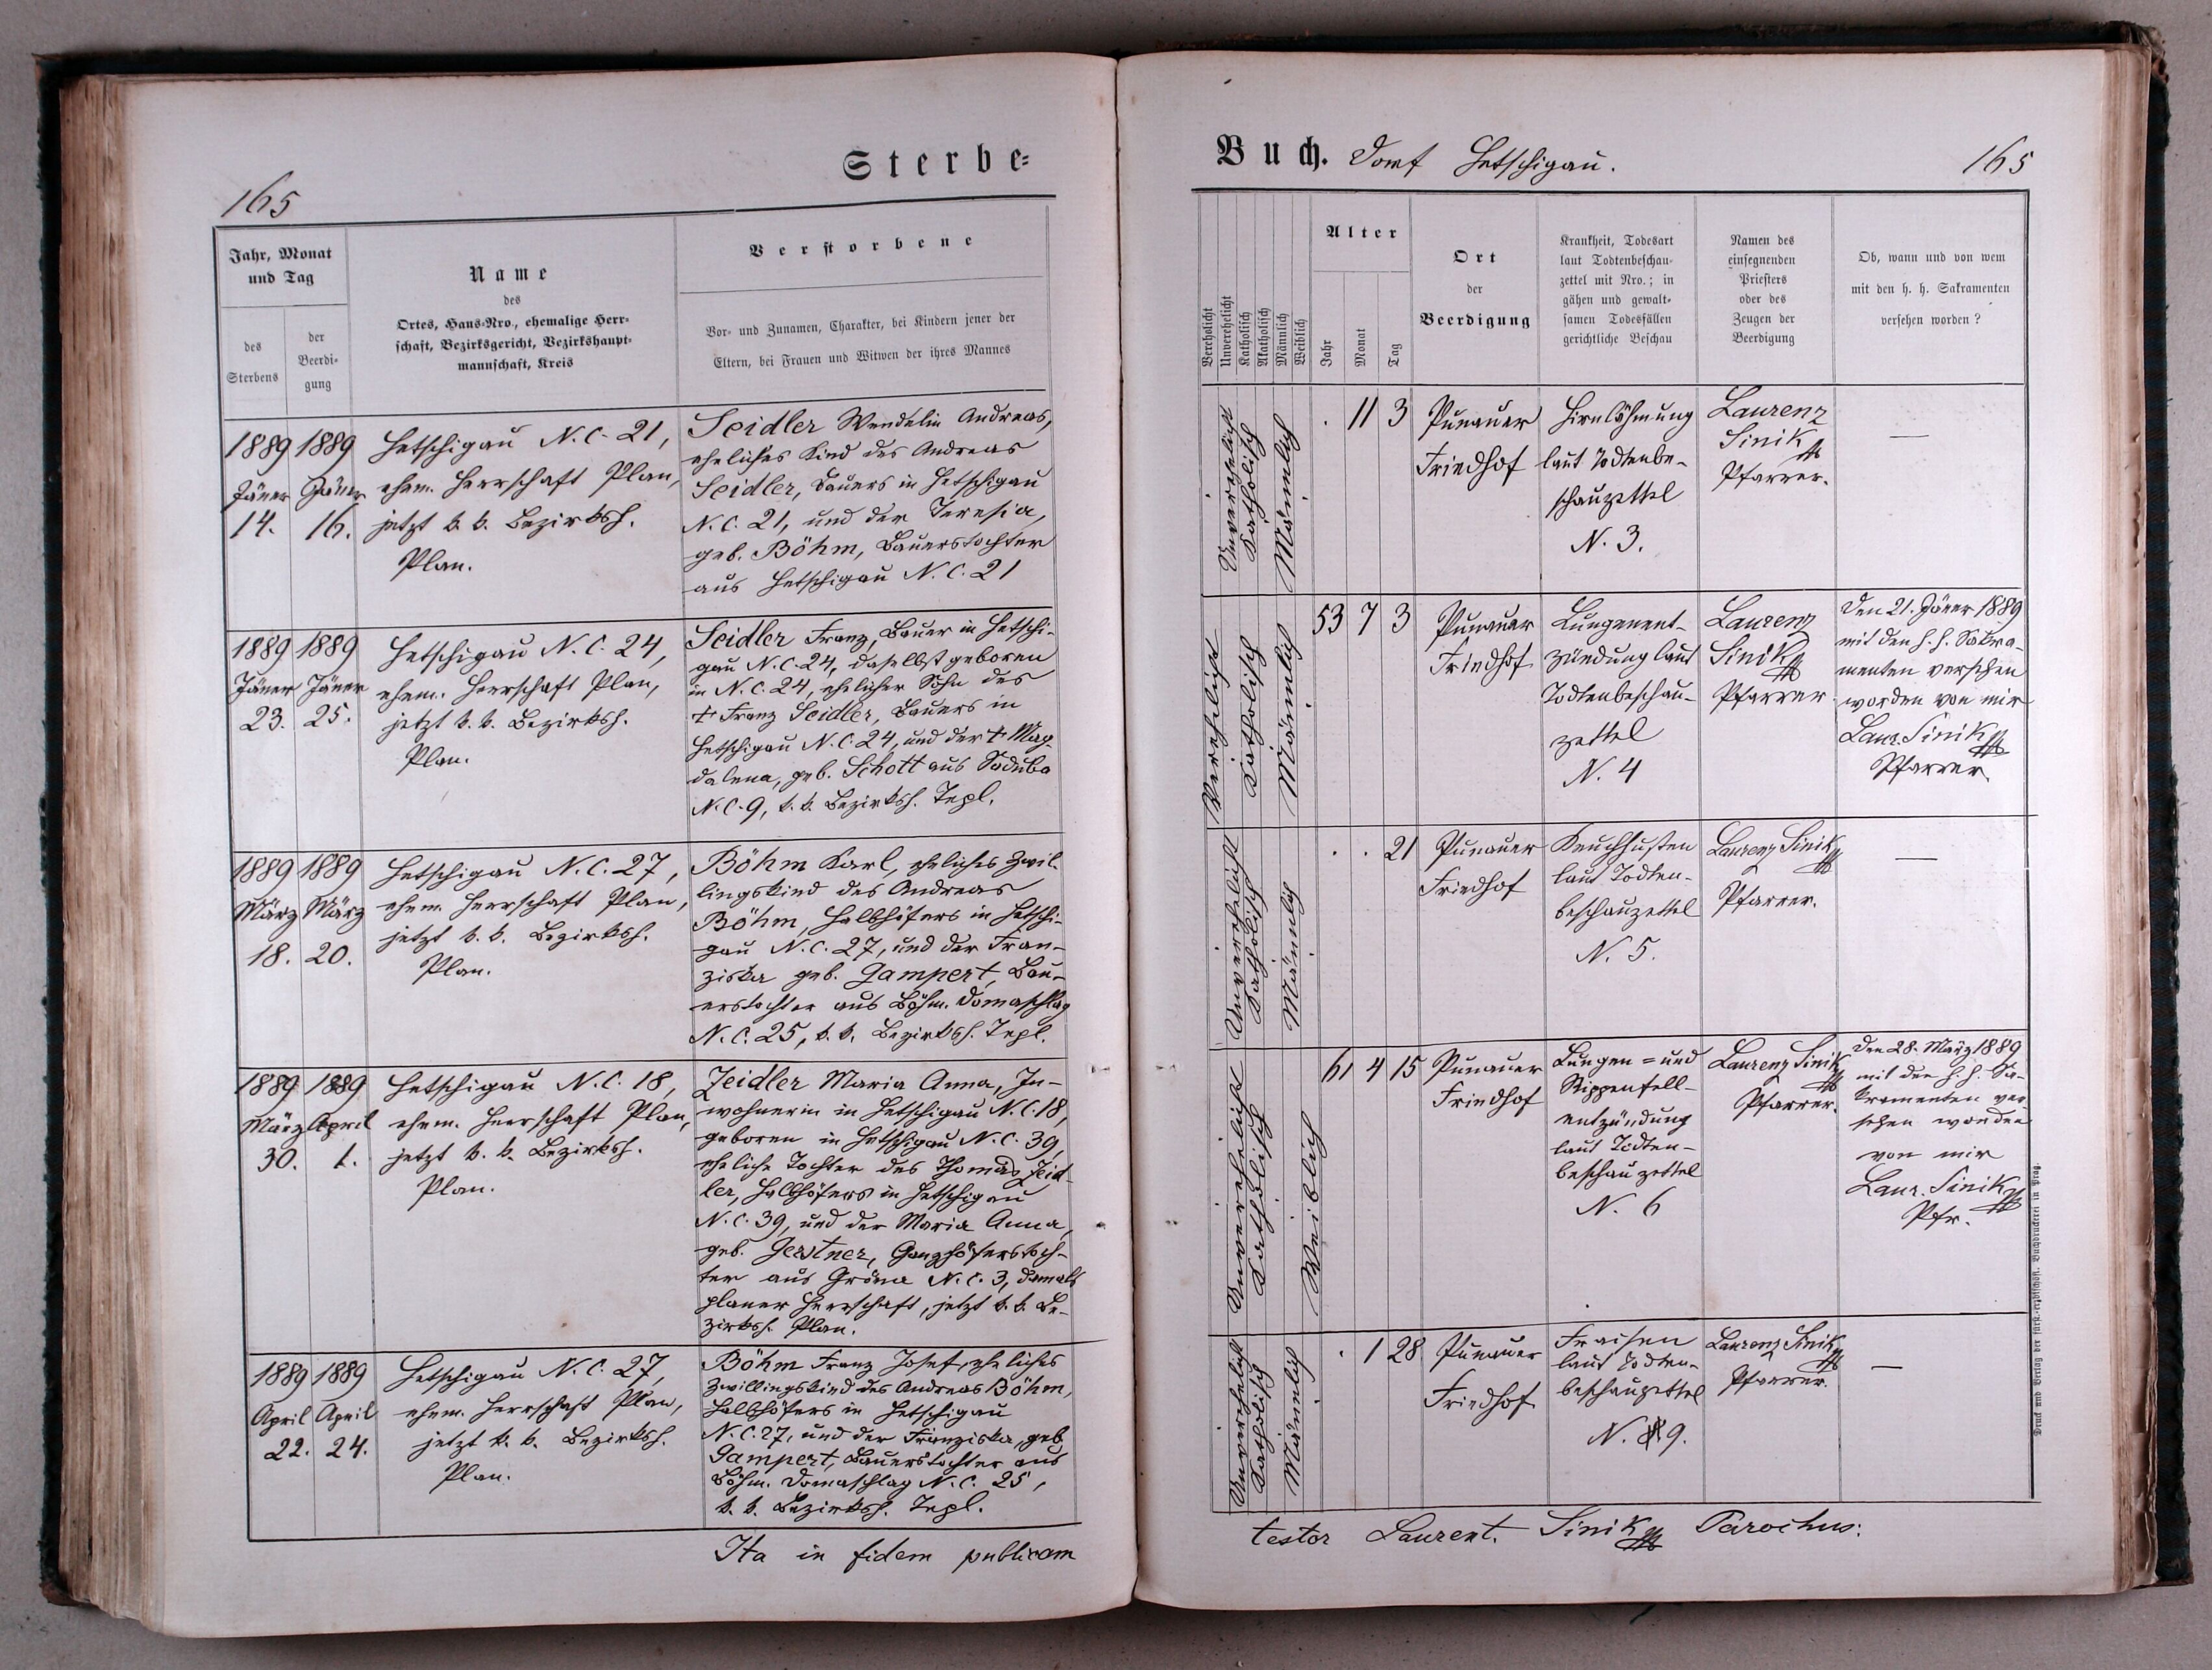 Sterbe-
165
Jahr, Monat
und Tag
des
Sterbens
der
Beerdi-
gung
Name
des
Ortes, Haus-Nro., ehemalige Herr-
schaft, Bezirksgericht, Bezirkshaupt-
mannschaft, Kreis
Verstorbene
Vor- und Zunamen, Charakter, bei Kindern jener der
Eltern, bei Frauen und Witwen der ihres Mannes
1889
Jäner
14.
1889
Jäner
16.
Hetschigau N. C. 21,
ehem. Herrschaft Plan,
jetzt k. k. Bezirksh.
Plan.
Seidler Wendelin Andreas,
eheliches Kind des Andreas
Seidler, Bauers in Hetschigau
N. C. 21, und der Teresia,
geb. Böhm, Bauerstochter
aus Hetschigau N. C. 21
1889
Jäner
23.
1889
Jäner
25.
Hetschigau N. C. 24,
ehem. Herrschaft Plan,
jetzt k. k. Bezirksh.
Plan.
Seidler Franz, Bauer in Hetschi-
gau N. C. 24, daselbst geboren
in N. C. 24, ehelicher Sohn des
† Franz Seidler, Bauers in
Hetschigau N. C. 24, und der † Mag-
dalena, geb. Schott aus
N. C. 9, k. k. Bezirksh. Tepl.
1889
März
18.
1889
März
20.
Hetschigau N. C. 27,
ehem. Herrschaft Plan,
jetzt k. k. Bezirksh.
Plan.
Böhm Karl, eheliches Zwil-
lingskind des Andreas
Böhm, Halbhöfers in Hetschi-
gau N. C. 27, und der Fran-
ziska geb. Gampert, Bau-
erstochter aus Böhm. Domaschlag
N. C. 25, k. k. Bezirksh. Tepl.
1889
März
30.
1889
April
1.
Hetschigau N. C. 18,
ehem. Herrschaft Plan,
jetzt k. k. Bezirksh.
Plan.
Zeidler Maria Anna, In-
wohnerin in Hetschigau N. C. 18,
geboren in Hetschigau N. C. 39,
eheliche Tochter des Thomas Zeid-
ler, Halbhöfers in Hetschigau
N. C. 39, und der Maria Anna,
geb. Gerstner, Ganzhöferstoch-
ter aus Gröna N. C. 3, damals
planer Herrschaft, jetzt k. k. Be-
zirksh. Plan.
1889
April
22.
1889
April
24.
Hetschigau N. C. 27,
ehem. Herrschaft Plan,
jetzt k. k. Bezirksh.
Plan.
Böhm Franz Josef, eheliches
Zwillingskind des Andreas Böhm,
Halbhöfers in Hetschigau
N. C. 27, und der Franziska, geb.
Gampert, Bauerstochter aus
Böhm. Domaschlag N. C. 25,
k. k. Bezirksh. Tepl.
Ita in fidem publicam
Buch. Dorf Hetschigau.
165
Verehelicht
Unverehelicht
Katholisch
Akatholisch
Männlich
Weiblich
Alter
Jahr
Monat
Tag
Ort
der
Beerdigung
Krankheit, Todesart
laut Todtenbeschau-
zettel mit Nro.; in
gähen und gewalt-
samen Todesfällen
gerichtliche Beschau
Namen des
einsegnenden
Priesters
oder des
Zeugen der
Beerdigung
Ob, wann und von wem
mit den h. h. Sakramenten
versehen worden?
Unverehelicht
Katholisch
Männlich
. 11 3
Punauer
Friedhof
Hirnlähmung
laut Todtenbe-
schauzettel
N. 3.
Laurenz
Sinik
Pfarrer.
—
Verehelicht
Katholisch
Männlich
53 7 3
Punauer
Friedhof
Lungenent-
zündung laut
Todtenbeschau-
zettel
N. 4
Laurenz
Sinik
Pfarrer
Den 21. Jäner 1889
mit den h. h. Sakra-
menten versehen
worden von mir
Laur. Sinik
Pfarrer.
Unverehelicht
Katholisch
Männlich
. . 21
Punauer
Friedhof
Keuchhusten
laut Todten-
beschauzettel
N. 5.
Laurenz Sinik
Pfarrer.
—
Unverehelicht
Katholisch
Weiblich
61 4 15
Punauer
Friedhof
Lungen- und
Rippenfell-
entzündung
laut Todten-
beschauzettel
N. 6
Laurenz Sinik
Pfarrer.
Den 28. März 1889
mit den h. h. Sa-
kramenten ver-
sehen worden
von mir
Laur. Sinik
Pfr.
Unverehelicht
Katholisch
Männlich
. 1 28
Punauer
Friedhof
Fraisen
laut Todten-
beschauzettel
N. 9.
Laurenz Sinik
Pfarrer.
—
testor Laurent. Sinik Parochus.
Druck und Verlag der fürst-erzbischöfl. Buchdruckerei in Prag.